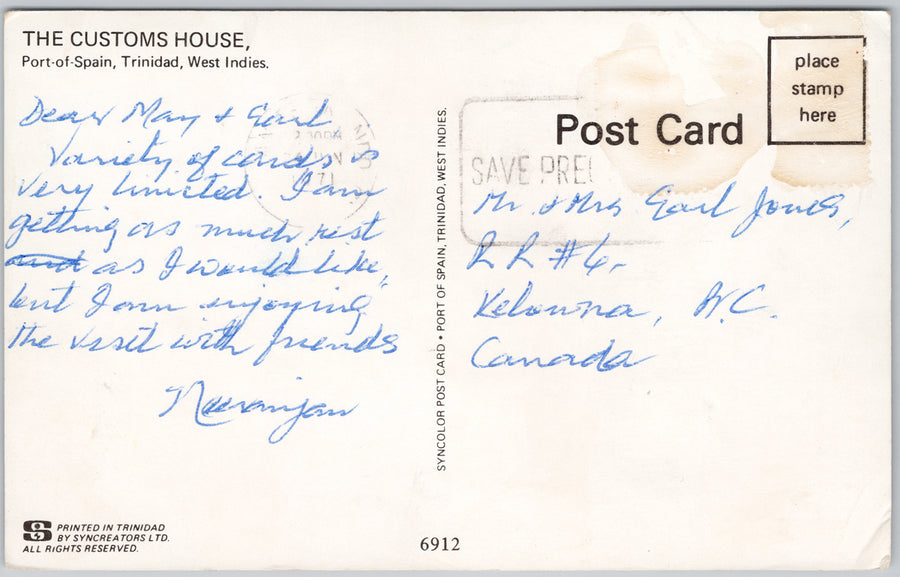 THE CUSTOMS HOUSE,
Port-of-Spain, Trinidad, West Indies.
Dear May & Earl
Variety of cards is
very limited. I am
getting as much rest
as I would like,
but I am enjoying
the visit with friends
SYNCOLOR POST CARD • PORT OF SPAIN, TRINIDAD, WEST INDIES.
place
stamp
here
Post Card
SAVE PRE
Mr. & Mrs Earl Jones,
R R #6,
Kelowna, B.C.
Canada
S PRINTED IN TRINIDAD
BY SYNCREATORS LTD.
ALL RIGHTS RESERVED.
6912